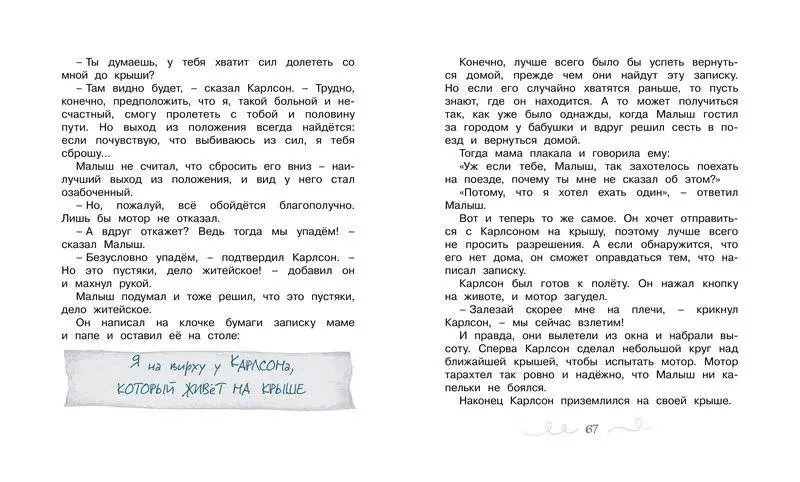 – Ты думаешь, у тебя хватит сил долететь со
мной до крыши?
– Там видно будет, – сказал Карлсон. – Трудно,
конечно, предположить, что я, такой больной и не-
счастный, смогу пролететь с тобой и половину
пути. Но выход из положения всегда найдётся:
если почувствую, что выбиваюсь из сил, я тебя
сброшу...
Малыш не считал, что сбросить его вниз – наи-
лучший выход из положения, и вид у него стал
озабоченный.
– Но, пожалуй, всё обойдётся благополучно.
Лишь бы мотор не отказал.
– А вдруг откажет? Ведь тогда мы упадём! –
сказал Малыш.
– Безусловно упадём, – подтвердил Карлсон. –
Но это пустяки, дело житейское! – добавил он
и махнул рукой.
Малыш подумал и тоже решил, что это пустяки,
дело житейское.
Он написал на клочке бумаги записку маме
и папе и оставил её на столе:
Я на вирху у Карлсона,
который живёт на крыше
Конечно, лучше всего было бы успеть вернуть-
ся домой, прежде чем они найдут эту записку.
Но если его случайно хватятся раньше, то пусть
знают, где он находится. А то может получиться
так, как уже было однажды, когда Малыш гостил
за городом у бабушки и вдруг решил сесть в по-
езд и вернуться домой.
Тогда мама плакала и говорила ему:
«Уж если тебе, Малыш, так захотелось поехать
на поезде, почему ты мне не сказал об этом?»
«Потому, что я хотел ехать один», – ответил
Малыш.
Вот и теперь то же самое. Он хочет отправить-
ся с Карлсоном на крышу, поэтому лучше всего
не просить разрешения. А если обнаружится, что
его нет дома, он сможет оправдаться тем, что на-
писал записку.
Карлсон был готов к полёту. Он нажал кнопку
на животе, и мотор загудел.
– Залезай скорее мне на плечи, – крикнул
Карлсон, – мы сейчас взлетим!
И правда, они вылетели из окна и набрали вы-
соту. Сперва Карлсон сделал небольшой круг над
ближайшей крышей, чтобы испытать мотор. Мотор
тарахтел так ровно и надёжно, что Малыш ни ка-
пельки не боялся.
Наконец Карлсон приземлился на своей крыше.
67